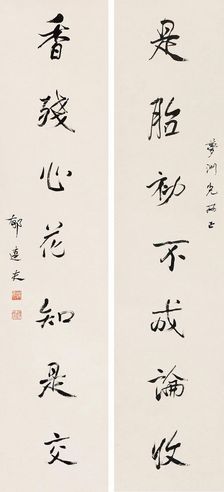 夢洲兄正
是胎不成論收
香殘心花知是交
郁達夫